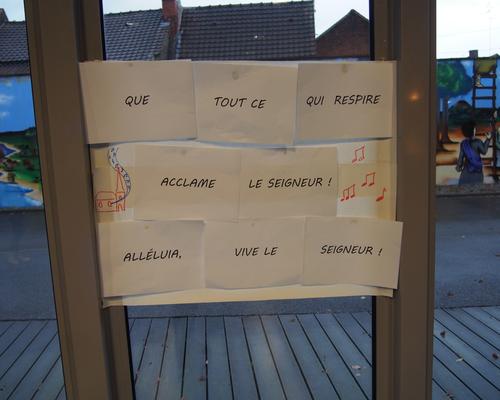 QUE TOUT CE QUI RESPIRE
ACCLAME LE SEIGNEUR !
ALLÉLUIA, VIVE LE SEIGNEUR !